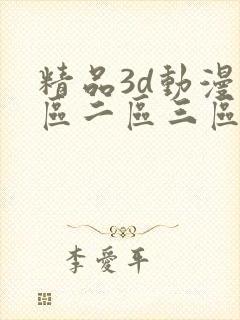 精品3d動漫
區二區三區
李愛平